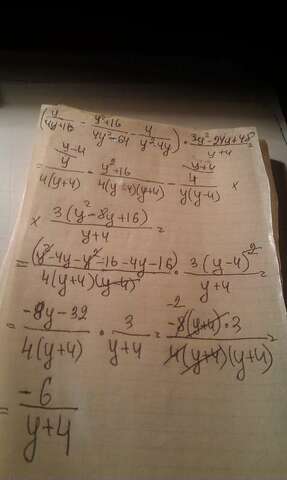 (y/(4y+16) - (y²+16)/(4y²-64) - 4/(y²-4y)) · (3y²-24y+48)/(y+4) =
= y^(y-4)/(4(y+4)) - (y²+16)/(4(y-4)(y+4)) - 4^(y+4)/(y(y-4)) ×
× 3(y²-8y+16)/(y+4) =
= (y²-4y-y²-16-4y-16)/(4(y+4)(y-4)) · 3(y-4)²/(y+4) =
= (-8y-32)/(4(y+4)) · 3/(y+4) = -2 -8(y+4)·3/(4(y+4)(y+4)) =
= -6/(y+4)